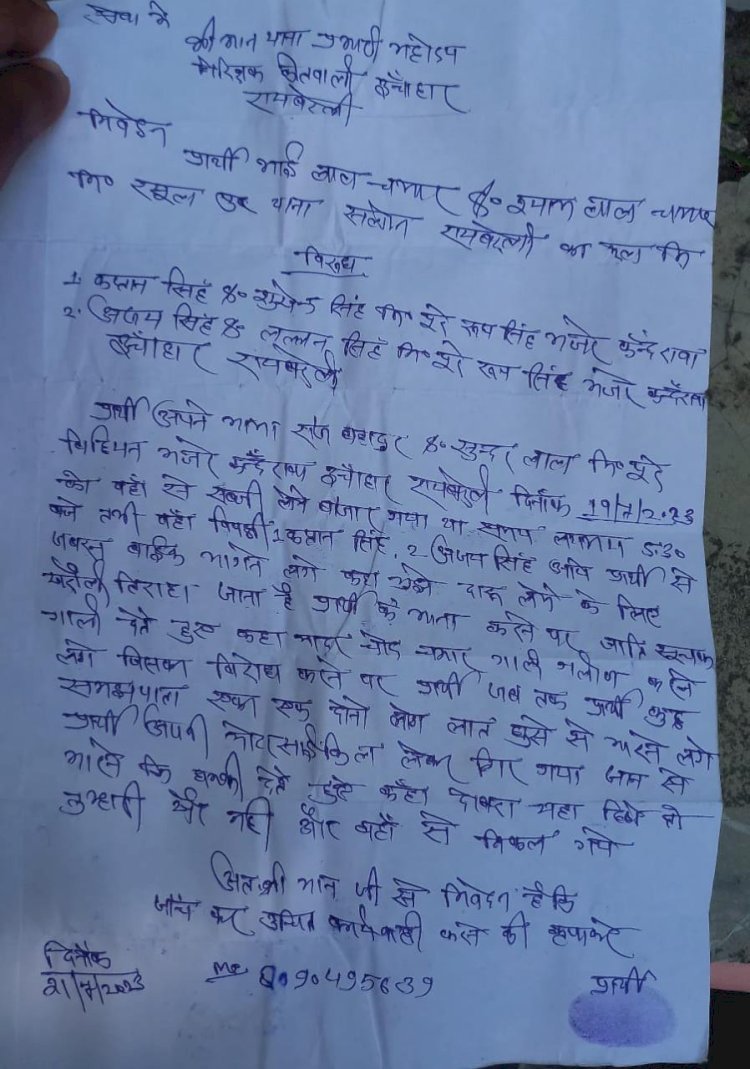 सेवा मे
श्री मान थाना प्रभारी महोदय
निरिक्षक कोतवाली ऊँचाहार
रायबरेली
निवेदन
प्रार्थी भाई लाल चमार S/o श्याम लाल चमार
नि० रसूल पुर थाना सलोन रायबरेली का कहना कि
विरुध
1. कप्तान सिंह S/o सिंह नि० पूरे रूप सिंह मजरे कन्दरावा
2. अजय सिंह S/o लल्लन सिंह नि० पूरे रूप सिंह मजरे कन्दरावा
ऊँचाहार रायबरेली
प्रार्थी अपने मामा राज बहादुर S/o सुन्दर लाल नि० पूरे
मजरे कन्दरावा ऊँचाहार रायबरेली दिनांक 19/7/2023
को वहाँ से सब्जी लेने बाजार गया था समय लगभग 5:30
बजे तभी वहाँ विपक्षी 1 कप्तान सिंह, 2 अजय सिंह आये प्रार्थी से
जबरन बाईक मांगने लगे कहा मुझे दारू लेने के लिए
तिराहा जाना है प्रार्थी के माना करने पर जाति सूचक
गाली देते हुए कहा मादर चोद चमार गाली गलौज करने
लगे जिसका विरोध करने पर प्रार्थी जब तक प्रार्थी कुछ
समझ पाता दोनो लोग लात घुसे से मारने लगे
प्रार्थी अपनी मोटरसाईकिल लेकर गिर गया जान से
मारने कि धमकी देते हुए कहाँ दोबारा यहा दिखे तो
तुम्हारी खैर नही और वहाँ से निकल गये
अतः श्री मान जी से निवेदन है कि
जाँच कर उचित कार्यवाही करने की कृपा करे
दिनाँक
21/7/2023
Mo 8090495639
प्रार्थी